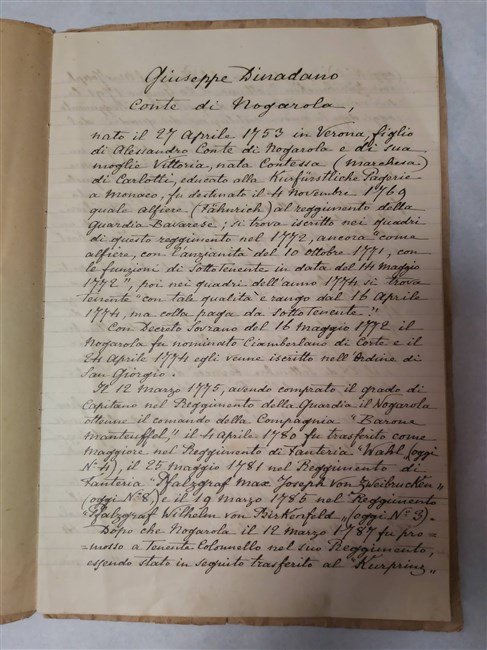 Giuseppe Dinadano
Conte di Nogarola,
nato il 27 Aprile 1753 in Verona, figlio
di Alessandro Conte di Nogarola e di sua
moglie Vittoria, nata Contessa (Marchesa)
di Carlotti, educato alla Kurfürstliche Pagerie
a Monaco, fu destinato il 4 Novembre 1769
quale alfiere (Fähnrich) al reggimento della
Guardia Bavarese; si trova iscritto nei quadri
di questo reggimento nel 1772, ancora "come
alfiere, con l'anzianità del 10 ottobre 1771, con
le funzioni di Sottotenente in data del 14 Maggio
1772", poi nei quadri dell'anno 1774 si trova
tenente "con tale qualità e rango dal 16 Aprile
1774, ma colla paga da Sottotenente."
Con Decreto Sovrano del 16 Maggio 1772 il
Nogarola fu nominato Ciamberlano di Corte e il
24 Aprile 1774 egli venne iscritto nell'Ordine di
San Giorgio.
Il 12 Marzo 1775, avendo comprato il grado di
Capitano nel Reggimento della Guardia il Nogarola
ottenne il comando della Compagnia "Barone
Manteuffel," il 4 Aprile 1780 fu trasferito come
Maggiore nel Reggimento di Fanteria "Wahl (oggi
Nº 4), il 25 Maggio 1781 nel Reggimento di
Fanteria "Pfalzgraf Max Joseph von Zweibrucken"
(oggi Nº 8) e il 19 Marzo 1785 nel Reggimento
"Pfalzgraf Wilhelm von Birkenfeld" (oggi Nº 3).
Dopo che Nogarola il 12 Marzo 1787 fu pro=
=mosso a tenente Colonnello nel suo Reggimento,
essendo stato in seguito trasferito al "Kurprinz"